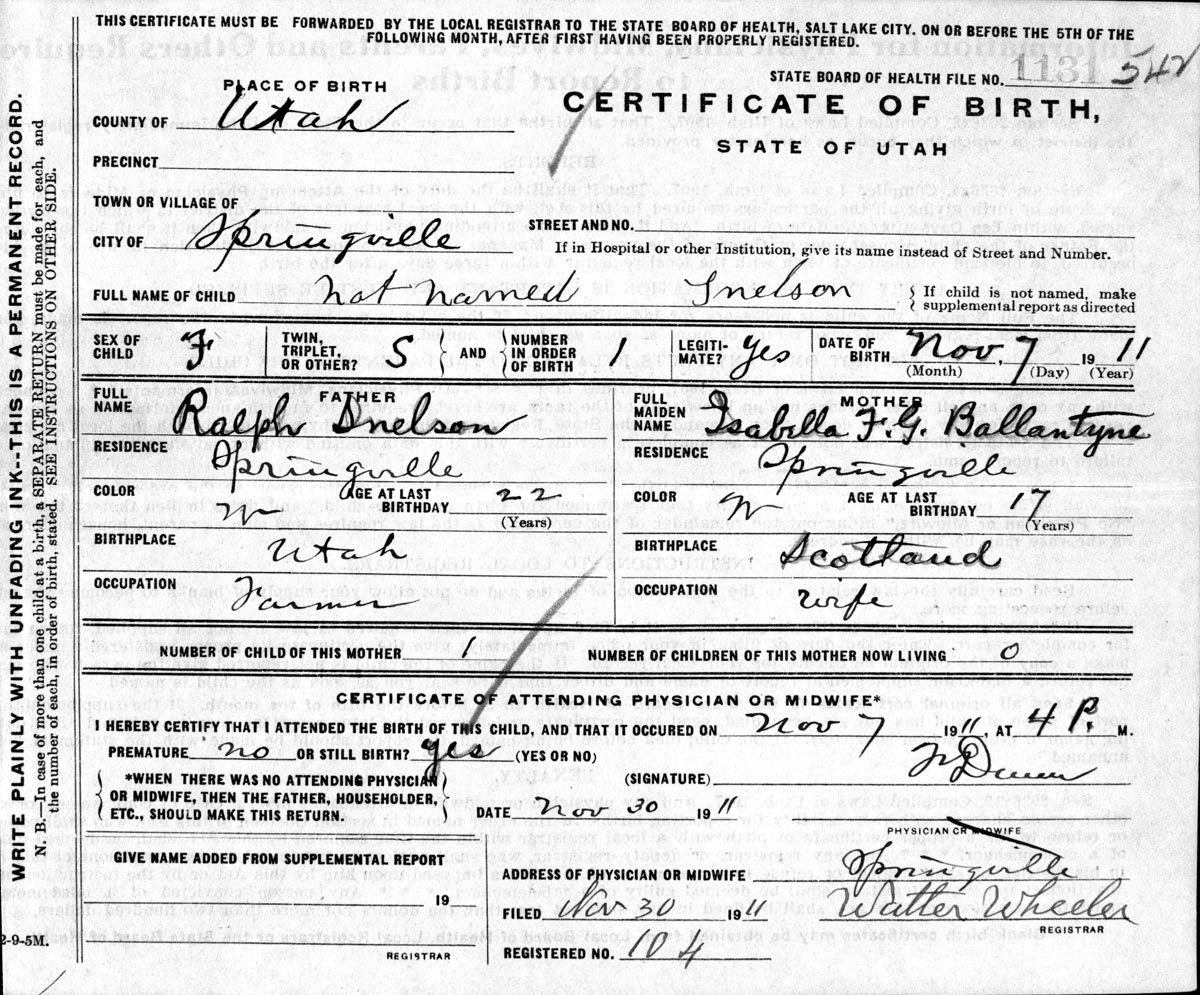 THIS CERTIFICATE MUST BE FORWARDED BY THE LOCAL REGISTRAR TO THE STATE BOARD OF HEALTH, SALT LAKE CITY. ON OR BEFORE THE 5TH OF THE
FOLLOWING MONTH, AFTER FIRST HAVING BEEN PROPERLY REGISTERED.
STATE BOARD OF HEALTH FILE NO. 1131 542
PLACE OF BIRTH
CERTIFICATE OF BIRTH,
STATE OF UTAH
COUNTY OF Utah
PRECINCT
TOWN OR VILLAGE OF
CITY OF Springville
STREET AND NO.
If in Hospital or other Institution, give its name instead of Street and Number.
FULL NAME OF CHILD not named Snelson
If child is not named, make
supplemental report as directed
SEX OF CHILD F TWIN, TRIPLET, OR OTHER? S AND NUMBER IN ORDER OF BIRTH 1 LEGITI-MATE? Yes DATE OF BIRTH Nov, 7 1911
(Month) (Day) (Year)
FATHER
FULL NAME Ralph Snelson
RESIDENCE Springville
COLOR W AGE AT LAST BIRTHDAY 22
(Years)
BIRTHPLACE Utah
OCCUPATION Farmer
MOTHER
FULL MAIDEN NAME Isabella F. G. Ballantyne
RESIDENCE Springville
COLOR W AGE AT LAST BIRTHDAY 17
(Years)
BIRTHPLACE Scotland
OCCUPATION wife
NUMBER OF CHILD OF THIS MOTHER 1 NUMBER OF CHILDREN OF THIS MOTHER NOW LIVING. 0
CERTIFICATE OF ATTENDING PHYSICIAN OR MIDWIFE*
I HEREBY CERTIFY THAT I ATTENDED THE BIRTH OF THIS CHILD, AND THAT IT OCCURED ON Nov 7 1911, AT 4 P. M.
PREMATURE no OR STILL BIRTH? yes (YES OR NO)
*WHEN THERE WAS NO ATTENDING PHYSICIAN
OR MIDWIFE, THEN THE FATHER, HOUSEHOLDER,
ETC., SHOULD MAKE THIS RETURN.
(SIGNATURE)
DATE Nov 30 1911
PHYSICIAN OR MIDWIFE
GIVE NAME ADDED FROM SUPPLEMENTAL REPORT
19
REGISTRAR
ADDRESS OF PHYSICIAN OR MIDWIFE Springville
FILED Nov 30 1911 Walter Wheeler
REGISTRAR
REGISTERED NO. 104
WRITE PLAINLY WITH UNFADING INK--THIS IS A PERMANENT RECORD.
N. B.--In case of more than one child at a birth, a SEPARATE RETURN must be made for each, and
the number of each, in order of birth, stated. SEE INSTRUCTIONS ON OTHER SIDE.
2-9-5M.